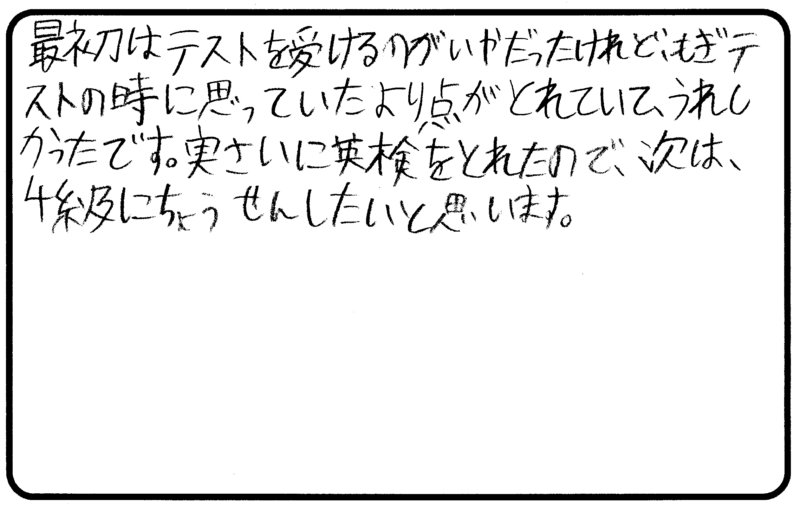 最初はテストを受けるのがいやだったけれど、もぎテ
ストの時に思っていたより点がとれていて、うれし
かったです。実さいに英検をとれたので、次は、
4級にちょうせんしたいと思います。